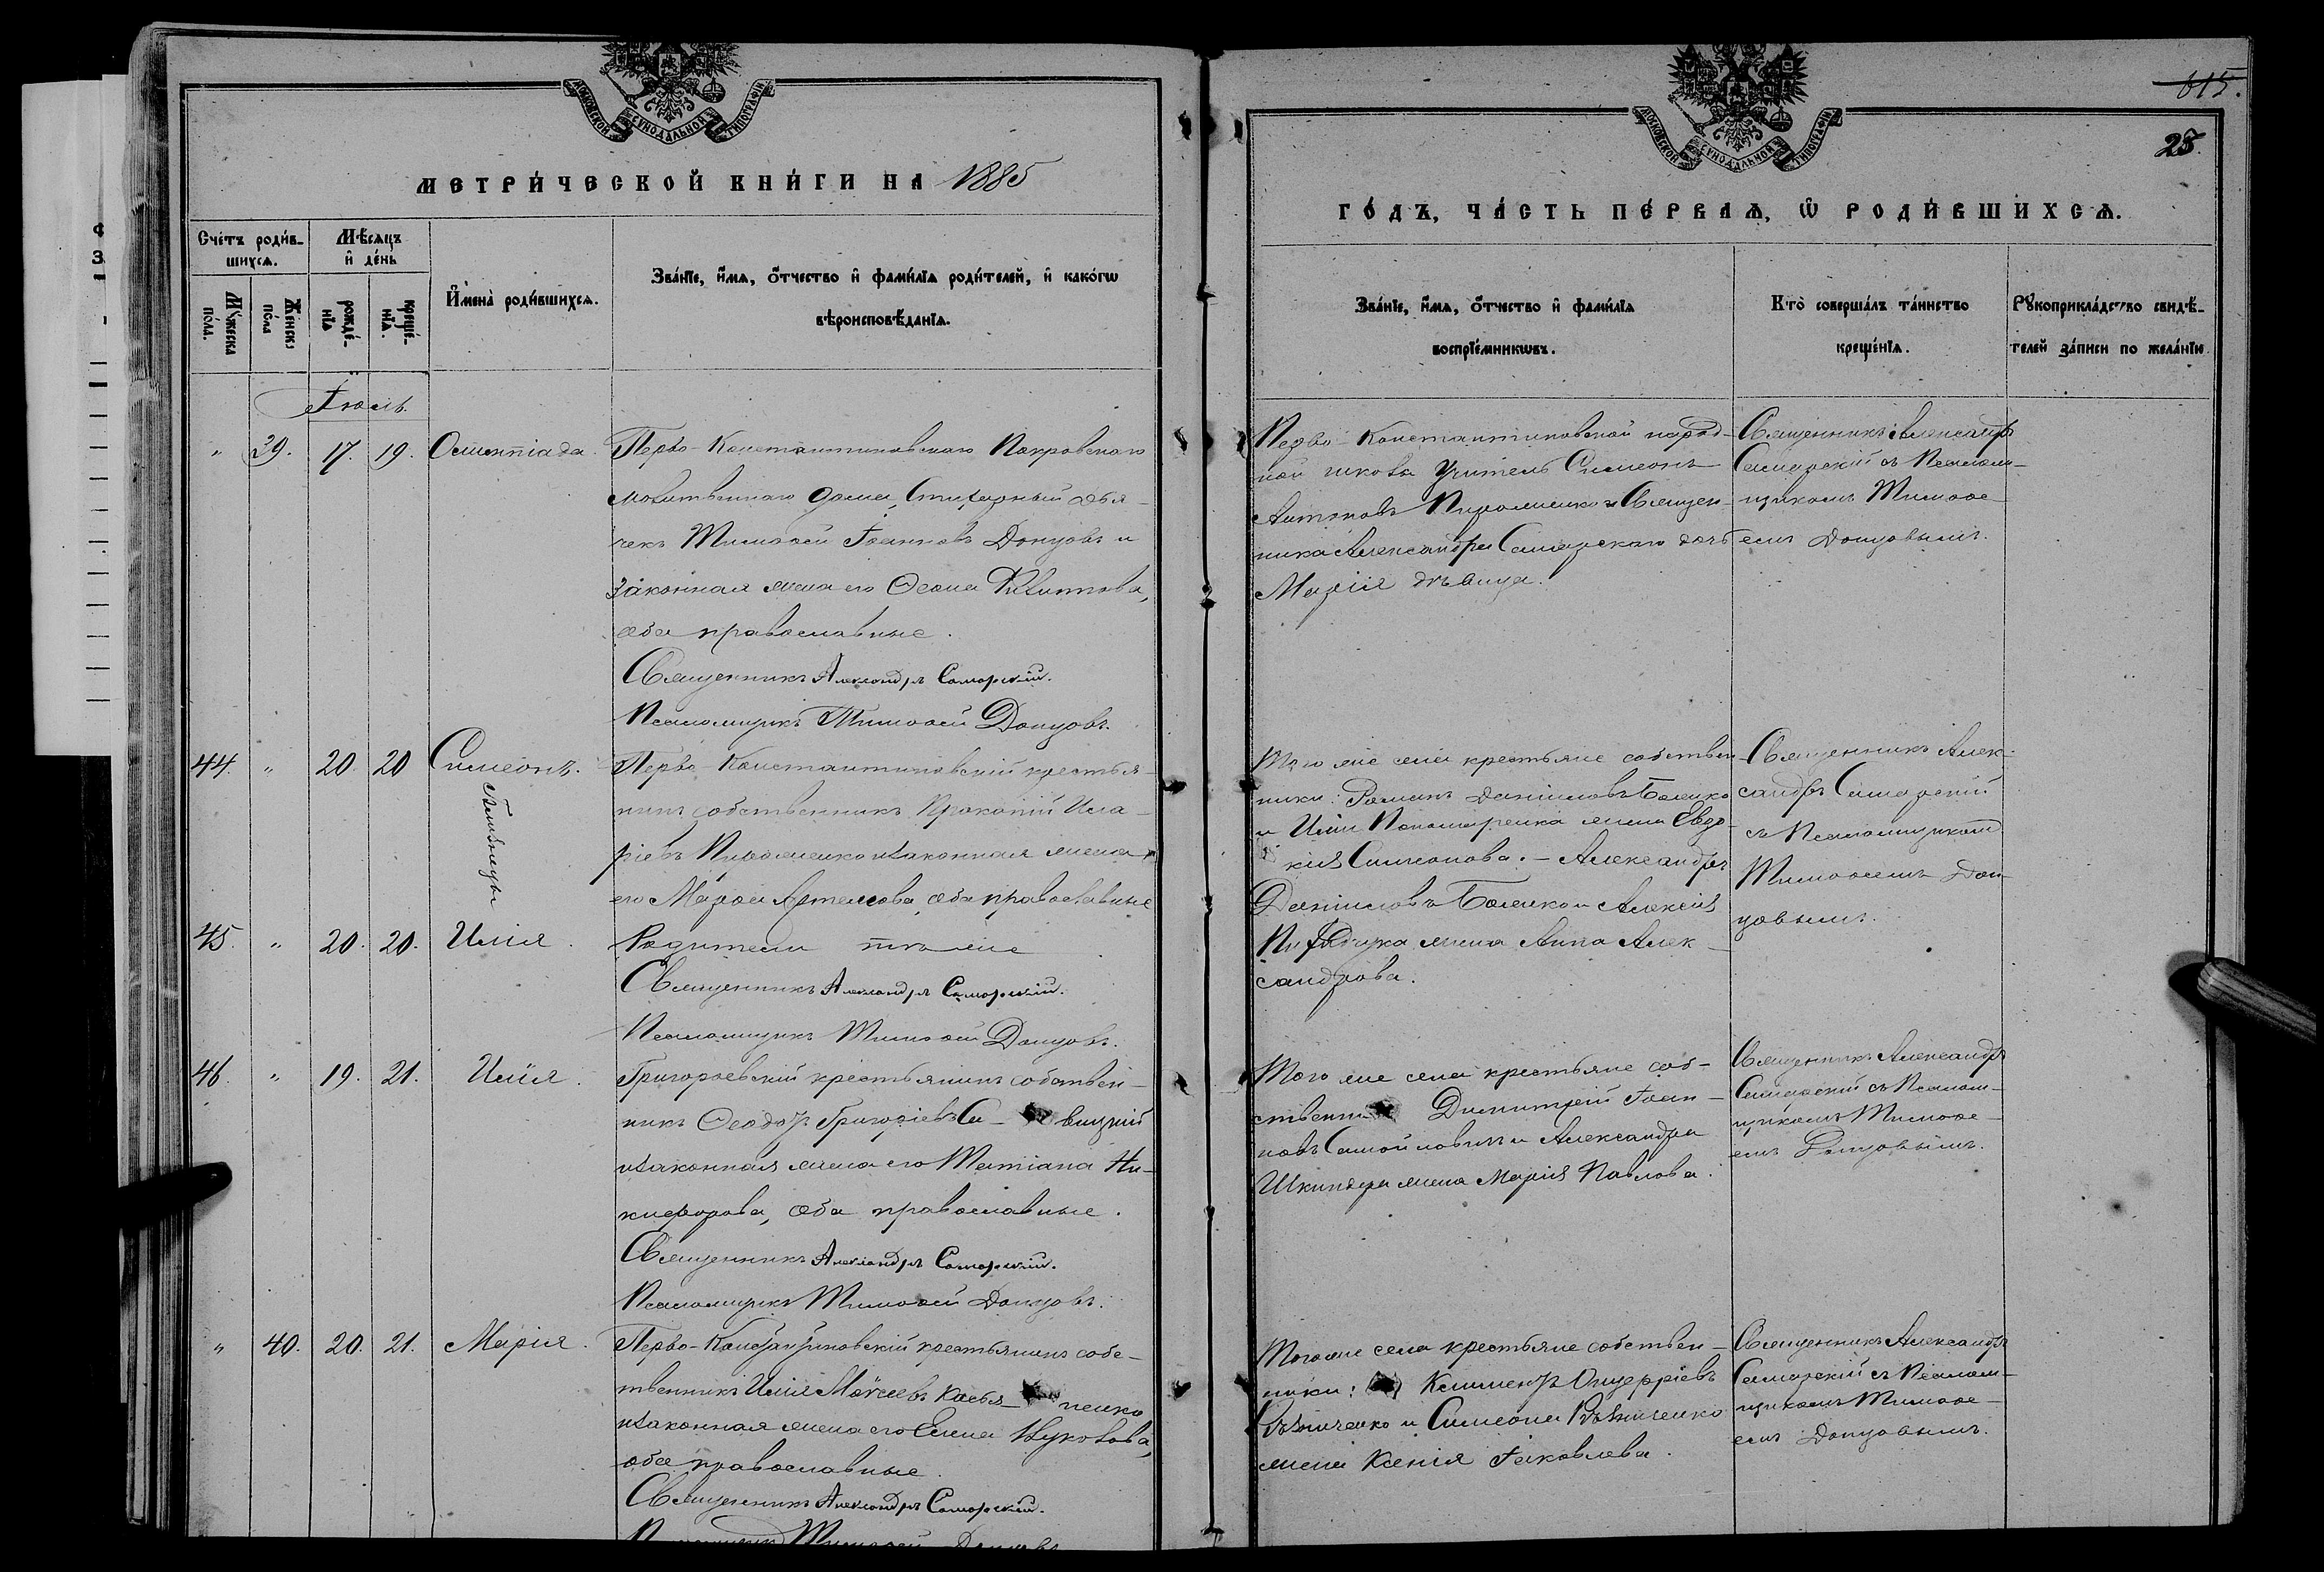 МОСКОВСКОЙ СУНОДАЛЬНОЙ ТИПОГРАФІИ
МЕТРИ́ЧЕСКОЙ КНИ́ГИ НА 1885
Сче́тъ роди́в-
шихсѧ.
Мѣ́сѧцъ
и҆ де́нь
Мꙋ́жеска
по́ла.
Же́нска
по́ла
рожде́-
нїѧ
креще́-
нїѧ.
И҆мена̀ роди́вшихсѧ.
Зва́нїе, и҆́мѧ, ѻ҆́тчество и҆ фами́лїѧ роди́телей, и҆ како́гѡ
вѣроисповѣ́данїѧ.
Іюль.
" 39. 17. 19. Олимпіада.
Перво-Константиновскаго Покровскаго
молитвеннаго дома, Стихарный дья-
чекъ Тимоѳей Іоанновъ Донцовъ и
законная жена его Ѳеона
оба православные.
Священникъ Александръ Самарскій.
Псаломщикъ Тимоѳей Донцовъ.
44. " 20. 20 Симеонъ.
Близнецы
Перво-Константиновскій крестья-
нинъ собственникъ Прокопій Ила-
ріевъ и законная жена
его Марѳа Артемова, оба православные
45. " 20. 20. Илія.
Родители тѣ же
Священникъ Александръ Самарскій.
Псаломщикъ Тимоѳей Донцовъ.
46. " 19. 21. Илія.
Григорьевскій крестьянинъ собствен-
никъ Ѳеодоръ Григоріевъ Са- вицкій
и законная жена его Татіана Ни-
кифорова, оба православные.
Священникъ Александръ Самарскій.
Псаломщикъ Тимоѳей Донцовъ.
" 40. 20. 21. Марія.
Перво-Константиновскій крестьянинъ собс-
твенникъ Илія Моисеевъ Касья- ненко
и законная жена его Елена
оба православные.
Священникъ Александръ Самарскій.
Псаломщикъ Тимоѳей Донцовъ
МОСКОВСКОЙ СУНОДАЛЬНОЙ ТИПОГРАФІИ
615.
28
ГО́ДЪ, ЧА́СТЬ ПЕ́РВАѦ, Ѽ РОДИ́ВШИХСѦ.
Зва́нїе, и҆́мѧ, ѻ҆́тчество и҆ фами́лїѧ
воспрїе́мникѡвъ.
Кто̀ соверша́лъ та́инство
креще́нїѧ.
Рꙋкоприкла́дство свидѣ́-
телей за́писи по жела́нїю.
Перво-Константиновской народ-
ной школы Учитель Симеонъ
Антоновъ и Священ-
ника Александра Самарскаго дочь
Марія дѣвица.
Священникъ Александръ
Самарскій съ Псалом-
щикомъ Тимоѳе-
емъ Донцовымъ.
Того же села крестьяне собствен-
ники: Романъ Даніиловъ
и Иліи Пономаренка жена Евдо-
кія Симеонова. - Александръ
Даніиловъ и Алексія
жена Анна Алек-
сандрова.
Священникъ Алек-
сандръ Самарскій
съ Псаломщикомъ
Тимоѳеемъ Дон-
цовымъ.
Того же села крестьяне соб-
ственники Димитрій Іоан-
новъ Самойловичъ и Александра
жена Марія Павлова.
Священникъ Александръ
Самарскій съ Псалом-
щикомъ Тимоѳе-
емъ Донцовымъ.
Того же села крестьяне собствен-
ники: Климентъ Онуфріевъ
и Симеона
жена Ксенія Іаковлева.
Священникъ Александръ
Самарскій съ Псалом-
щикомъ Тимоѳе-
емъ Донцовымъ.